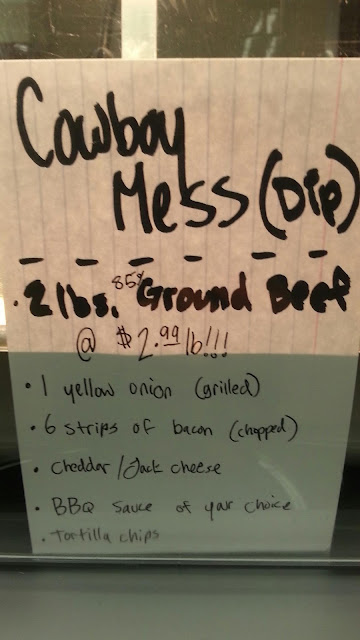 Cowboy
Mess (Dip)
- - - - - -
· 2 lbs. 85% Ground Beef
@ $2.99 lb!!!
· 1 yellow onion (grilled)
· 6 strips of bacon (chopped)
· Cheddar / Jack cheese
· BBQ sauce of your choice
· Tortilla chips